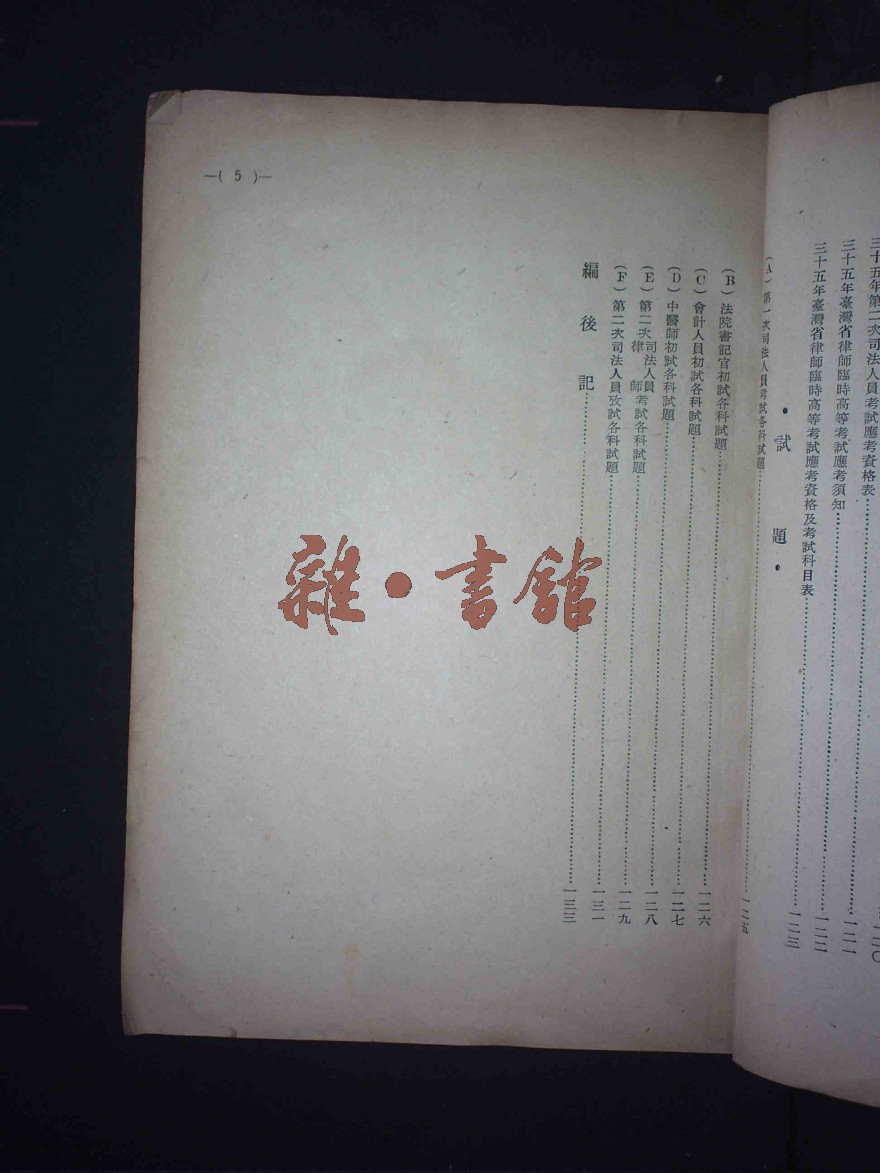 一二〇
三十五年第二次司法人員考試應考資格表……一二一
三十五年臺灣省律師臨時高等考試應考須知……一二二
三十五年臺灣省律師臨時高等考試應考資格及考試科目表……一二三
•試題•
(A)第一次司法人員考試各科試題……一二五
(B)法院書記官初試各科試題……一二六
(C)會計人員初試各科試題……一二七
(D)中醫師初試各科試題……一二八
(E)第二次司法人員律師考試各科試題……一二九
(F)第二次司法人員攷試各科試題……一三一
編後記……一三三
—( 5 )—
雜•書館